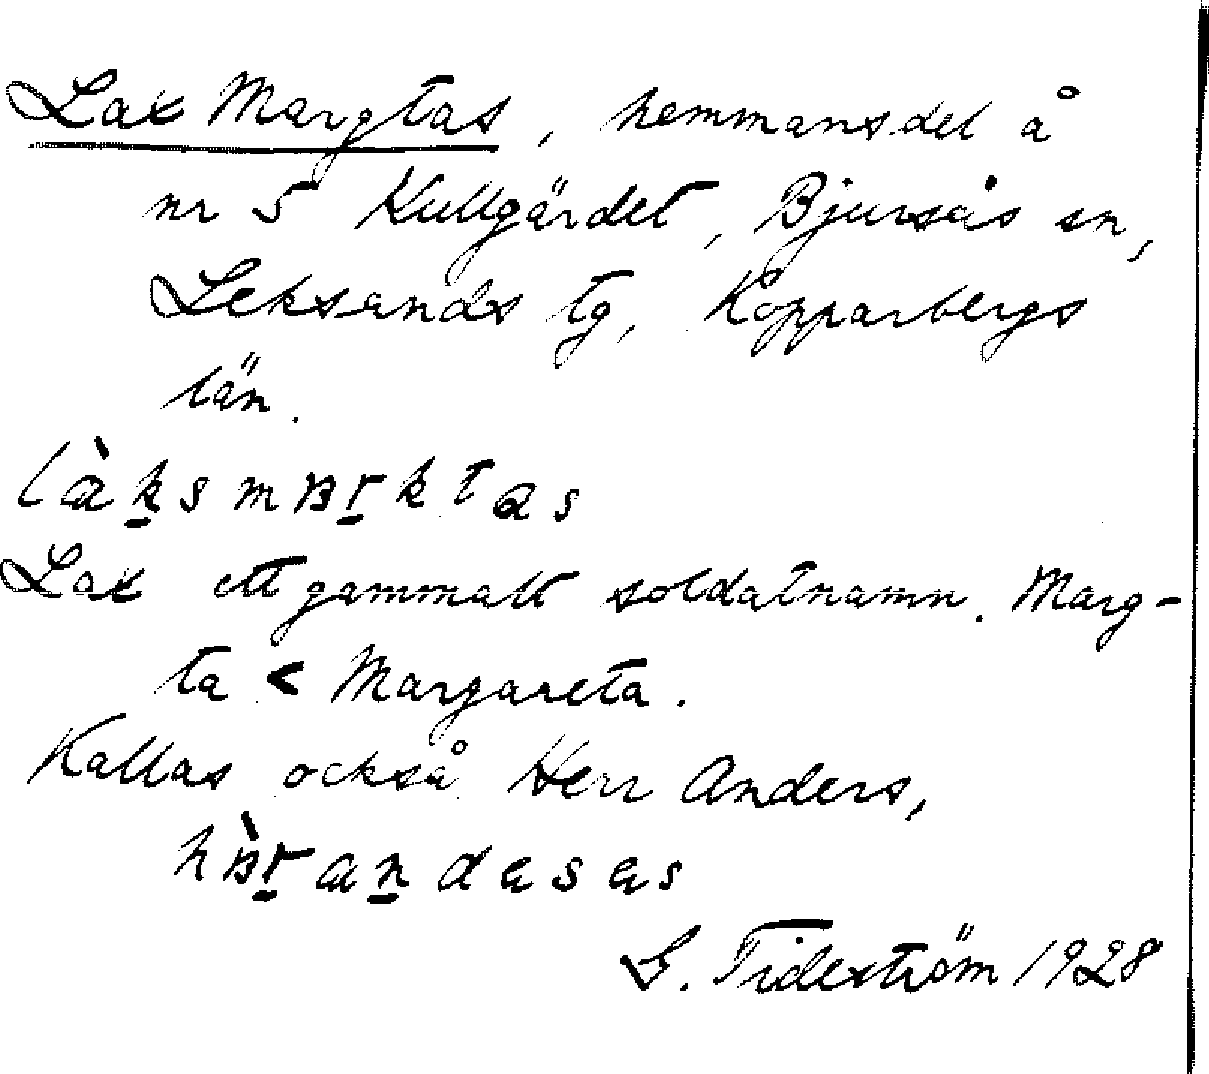 Lax Margtas, hemmansdel å
nr 5 Kullgärdet, Bjursås sn,
Leksands tg, Kopparbergs
län.
Lax ett gammalt soldatnamn. Marg-
ta < Margareta.
Kallas också Herr Anders,
G. Tideström 1928